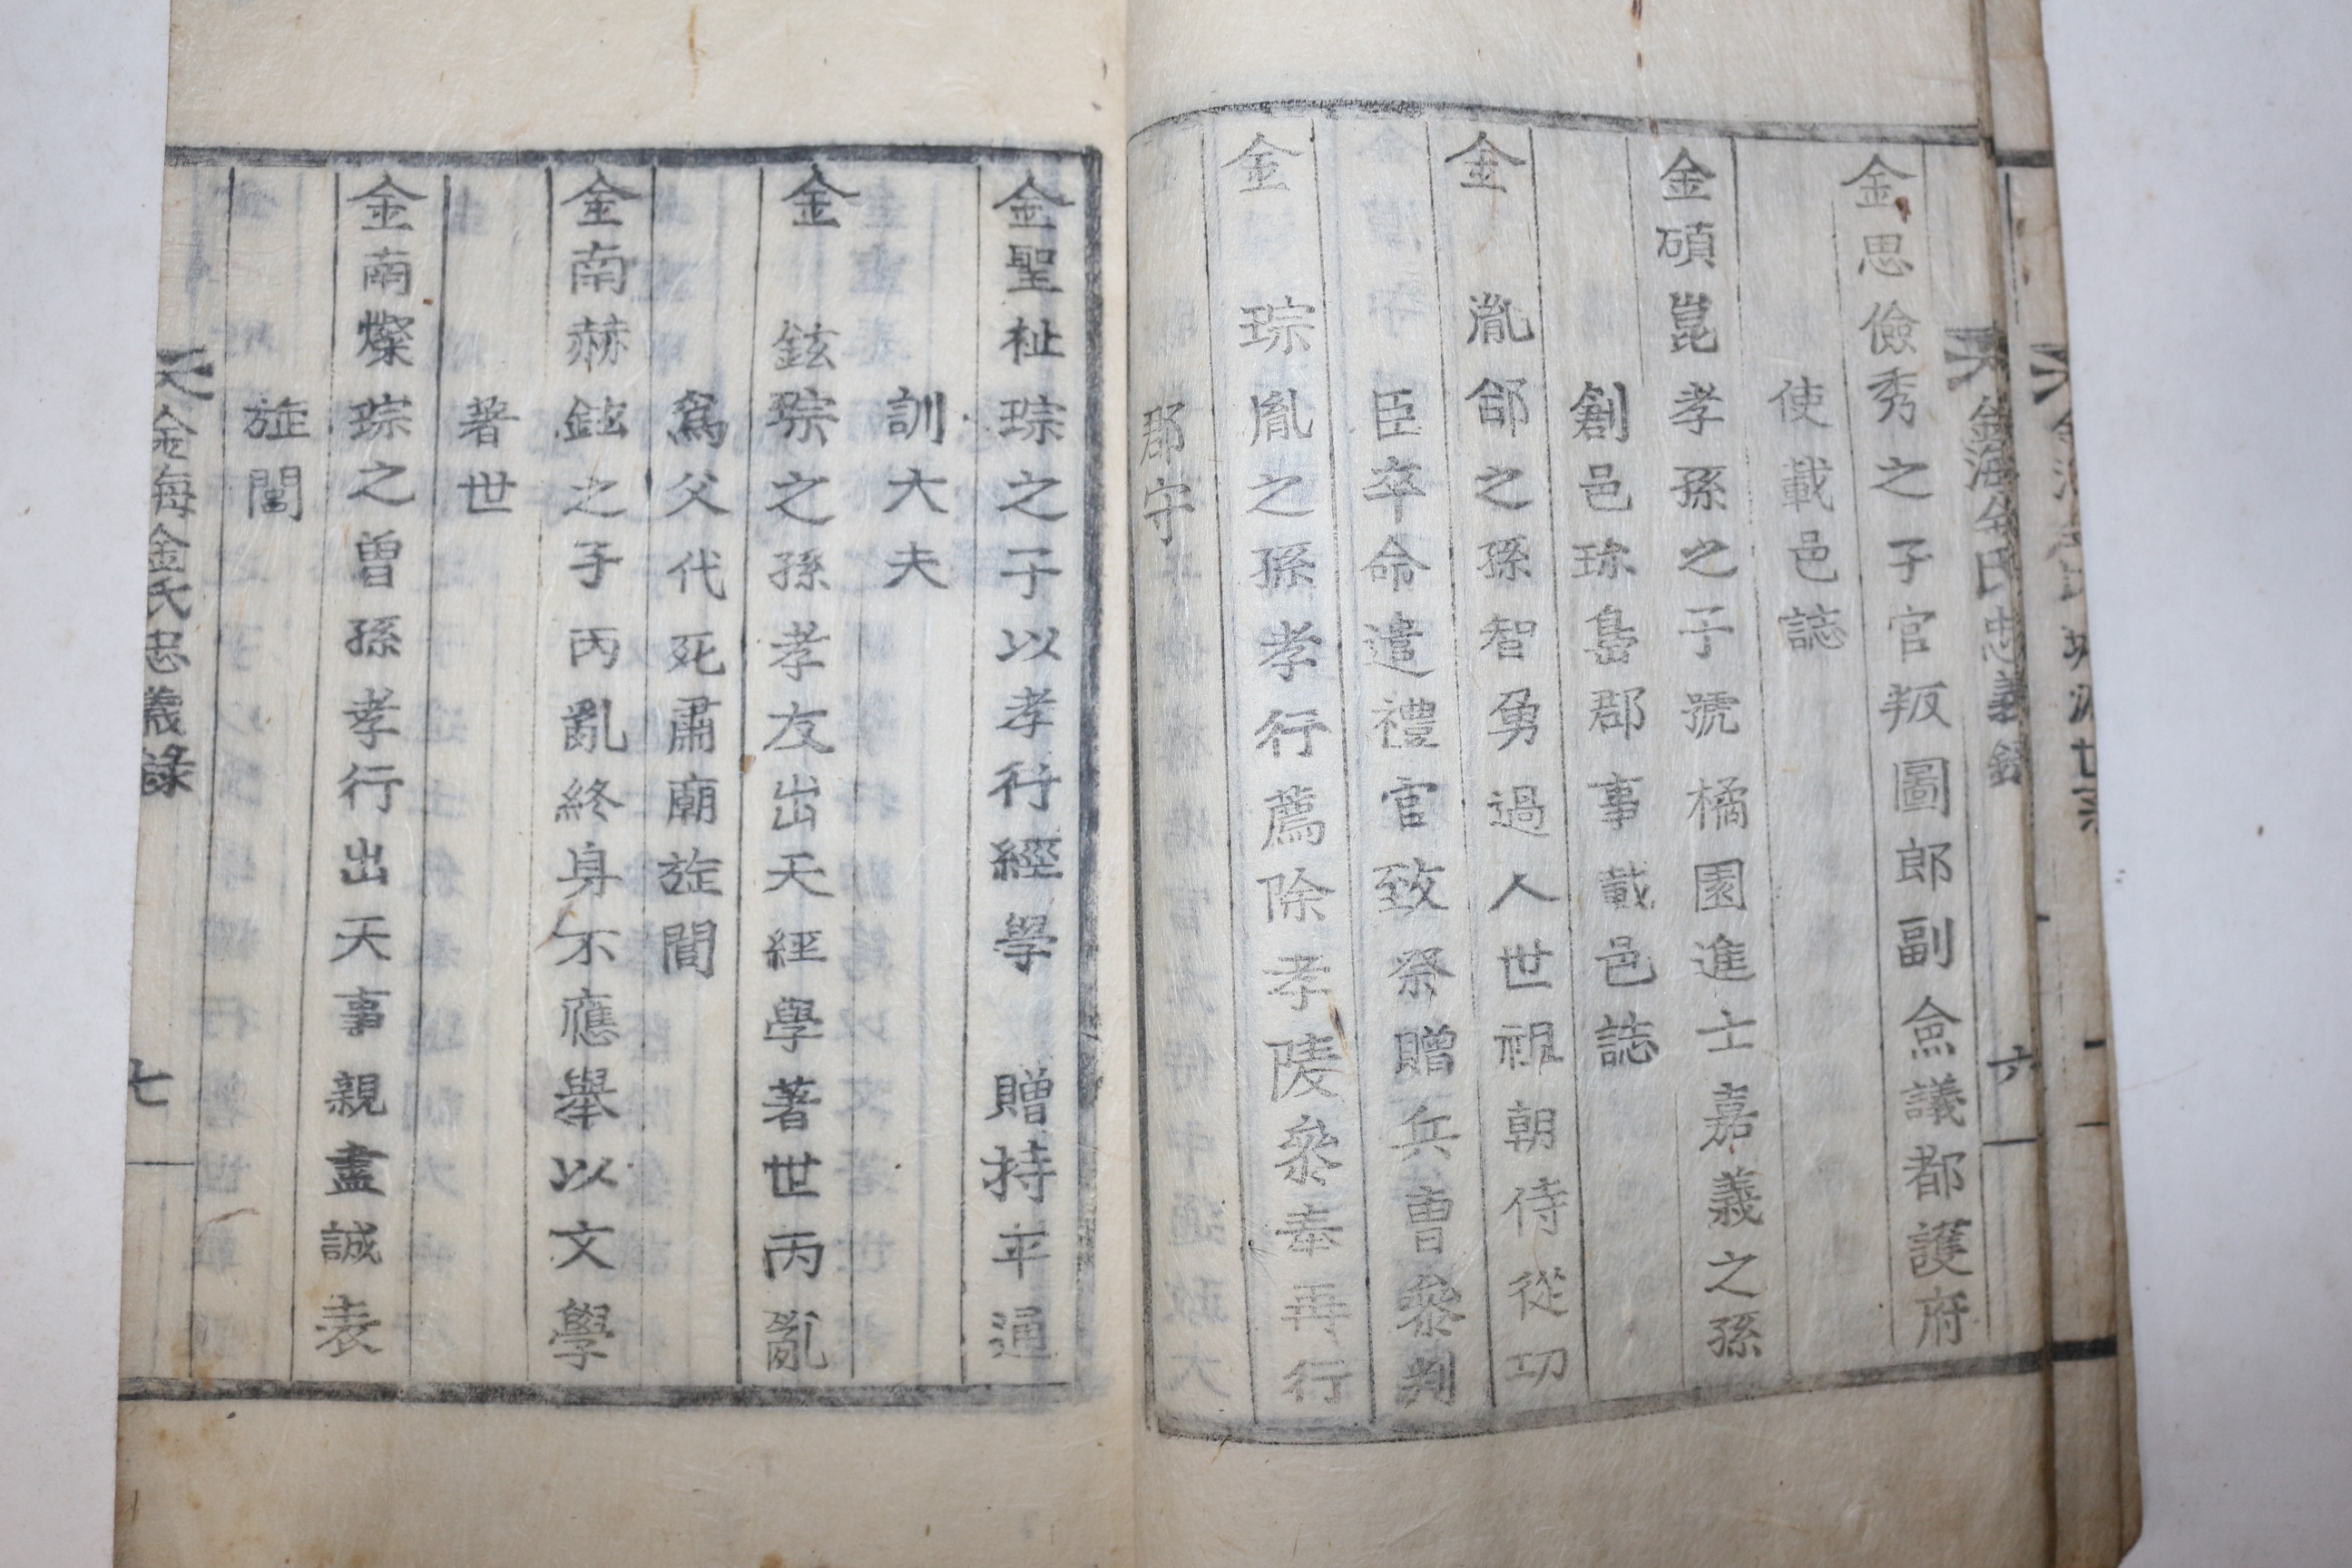 金海金氏忠義錄
六
金思儉秀之子官版圖郎副僉議都護府
使載邑誌
金碩崑孝孫之子號橘園進士嘉義之孫
創邑珎島郡事載邑誌
金胤郃之孫智勇過人世祖朝侍從功
臣卒命遣禮官致祭贈兵曹叅判
金琮胤之孫孝行薦除孝陵叅奉再行
郡守
金聖祉琮之子以孝行經學 贈持平通
訓大夫
金鉉琮之孫孝友出天經學著世丙亂
爲父代死肅廟旋閭
金南赫鉉之子丙亂終身不應舉以文學
著世
金南燦琮之曾孫孝行出天事親盡誠表
旋閭
金海金氏忠義錄
七